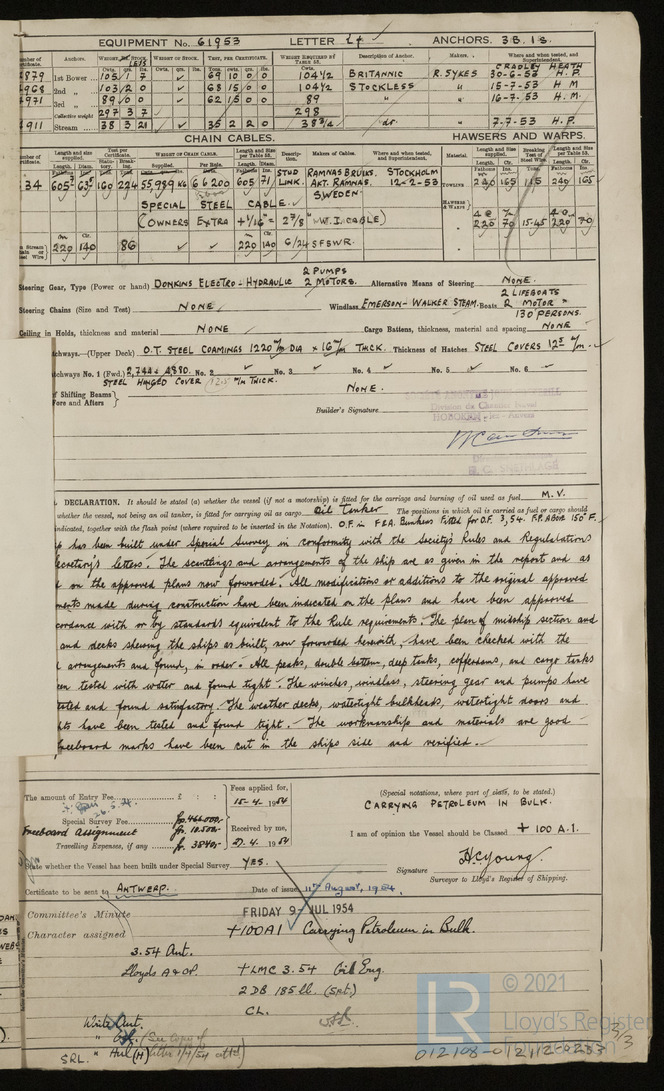 EQUIPMENT No. 61953 LETTER Lt ANCHORS. 3B. 1S.
Number of Certificate. WEIGHT, EX. STOCK WEIGHT OF STOCK. TEST, PER CERTIFICATE. WEIGHT REQUIRED BY TABLE 53. Description of Anchor. Makers. Where and when tested, and Superintendent.
Cwts. qrs. lbs. CRADLEY HEATH
1879 1st Bower 105 1 7 69 10 0 0 104½ BRITANNIC R. SYKES 30-6-53 H.P.
1968 2nd „ 103 2 0 68 15 0 0 104½ STOCKLESS " 15-7-53 H M
1971 3rd „ 89 0 0 62 15 0 0 89 " " 16-7-53 H.M.
Collective weight 297 3 7 298
1911 Stream 38 3 21 35 2 2 0 38¾ do. " 7-7-53 H.P.
CHAIN CABLES. HAWSERS AND WARPS.
Length and size supplied. Test per Certificate. WEIGHT OF CHAIN CABLE. Length and Size per Table 53. Description. Makers of Cables. Where and when tested, and Superintendent. Material. Length and Size supplied. Breaking Test of Steel Wire. Length and Size per Table 53.
34 605 63 160 224 55,989 KG 66200 605 71 STUD LINK. RAMNAS BRUKS. AKT. RAMNAS. SWEDEN STOCKHOLM 12-2-53 TOWLINE 240 165 115 240 165
SPECIAL STEEL CABLE.
(OWNERS EXTRA + 1/16" = 2 7/8" W.I. CABLE) HAWSERS & WARPS 4 @ 220 70 15.45 4 @ 220 70
220 140 86 220 140 6/24 S.F.S.W.R.
Steering Gear, Type (Power or hand) DONKINS ELECTRO-HYDRAULIC 2 PUMPS 2 MOTORS. Alternative Means of Steering NONE.
Steering Chains (Size and Test) NONE Windlass EMERSON-WALKER STEAM. Boats 2 LIFEBOATS 2 MOTOR " 130 PERSONS.
Ceiling in Holds, thickness and material NONE Cargo Battens, thickness, material and spacing NONE
Hatchways.—(Upper Deck) O.T. STEEL COAMINGS 1220 m/m DIA × 16 m/m THICK. Thickness of Hatches STEEL COVERS 12.5 m/m.
Hatchways No. 1 (Fwd.) 2,744 × 4880. No. 2 No. 3 No. 4 No. 5 No. 6
STEEL HINGED COVER 12.5 m/m THICK.
of Shifting Beams
Fore and Afters } NONE.
Builder's Signature
DECLARATION. It should be stated (a) whether the vessel (if not a motorship) is fitted for the carriage and burning of oil used as fuel M.V.
whether the vessel, not being an oil tanker, is fitted for carrying oil as cargo Oil Tanker The positions in which oil is carried as fuel or cargo should
indicated, together with the flash point (where required to be inserted in the Notation). O.F. in F.&A. Bunkers fitted for O.F. 3,54. F.P. ABOVE 150°F.
has been built under Special Survey in conformity with the Society's Rules and Regulations
Secretary's letters. The scantlings and arrangements of the ship are as given in the report and as
on the approved plans now forwarded. All modifications or additions to the original approved
ments made during construction have been indicated on the plans and have been approved
cordance with or by standards equivalent to the Rule requirements. The plan of midship section and
and decks shewing the ships as built, now forwarded herewith, have been checked with the
arrangements and found, in order. All peaks, double bottom, deep tanks, cofferdams, and cargo tanks
een tested with water and found tight. The winches, windlass, steering gear and pumps have
tested and found satisfactory. The weather decks, watertight bulkheads, watertight doors and
have been tested and found tight. The workmanship and materials are good
freeboard marks have been cut in the ships side and verified.
The amount of Entry Fee £ : : Fees applied for, 15-4-1954
Special Survey Fee fr. 466000
Freeboard Assignment fr. 10.500
Travelling Expenses, if any fr. 3840 Received by me, 27.4.1954
(Special notations, where part of class, to be stated.)
CARRYING PETROLEUM IN BULK.
I am of opinion the Vessel should be Classed + 100 A.1.
State whether the Vessel has been built under Special Survey YES.
Signature H.C. Young.
Surveyor to Lloyd's Register of Shipping.
Certificate to be sent to ANTWERP. Date of issue 11th August, 1954.
Committee's Minute FRIDAY 9 - JUL 1954
Character assigned +100A1 Carrying Petroleum in Bulk.
3.54 Ant.
Lloyds A & CP. +LMC 3.54 Oil Eng.
2 DB 185 lb. (Spt.)
CL.
Write Ant.
(See copy of
SRL. " Hul (H) letter 1/4/54 attd)
© 2021
LR Lloyd's Register
Foundation
012108-012112-0233 3/3